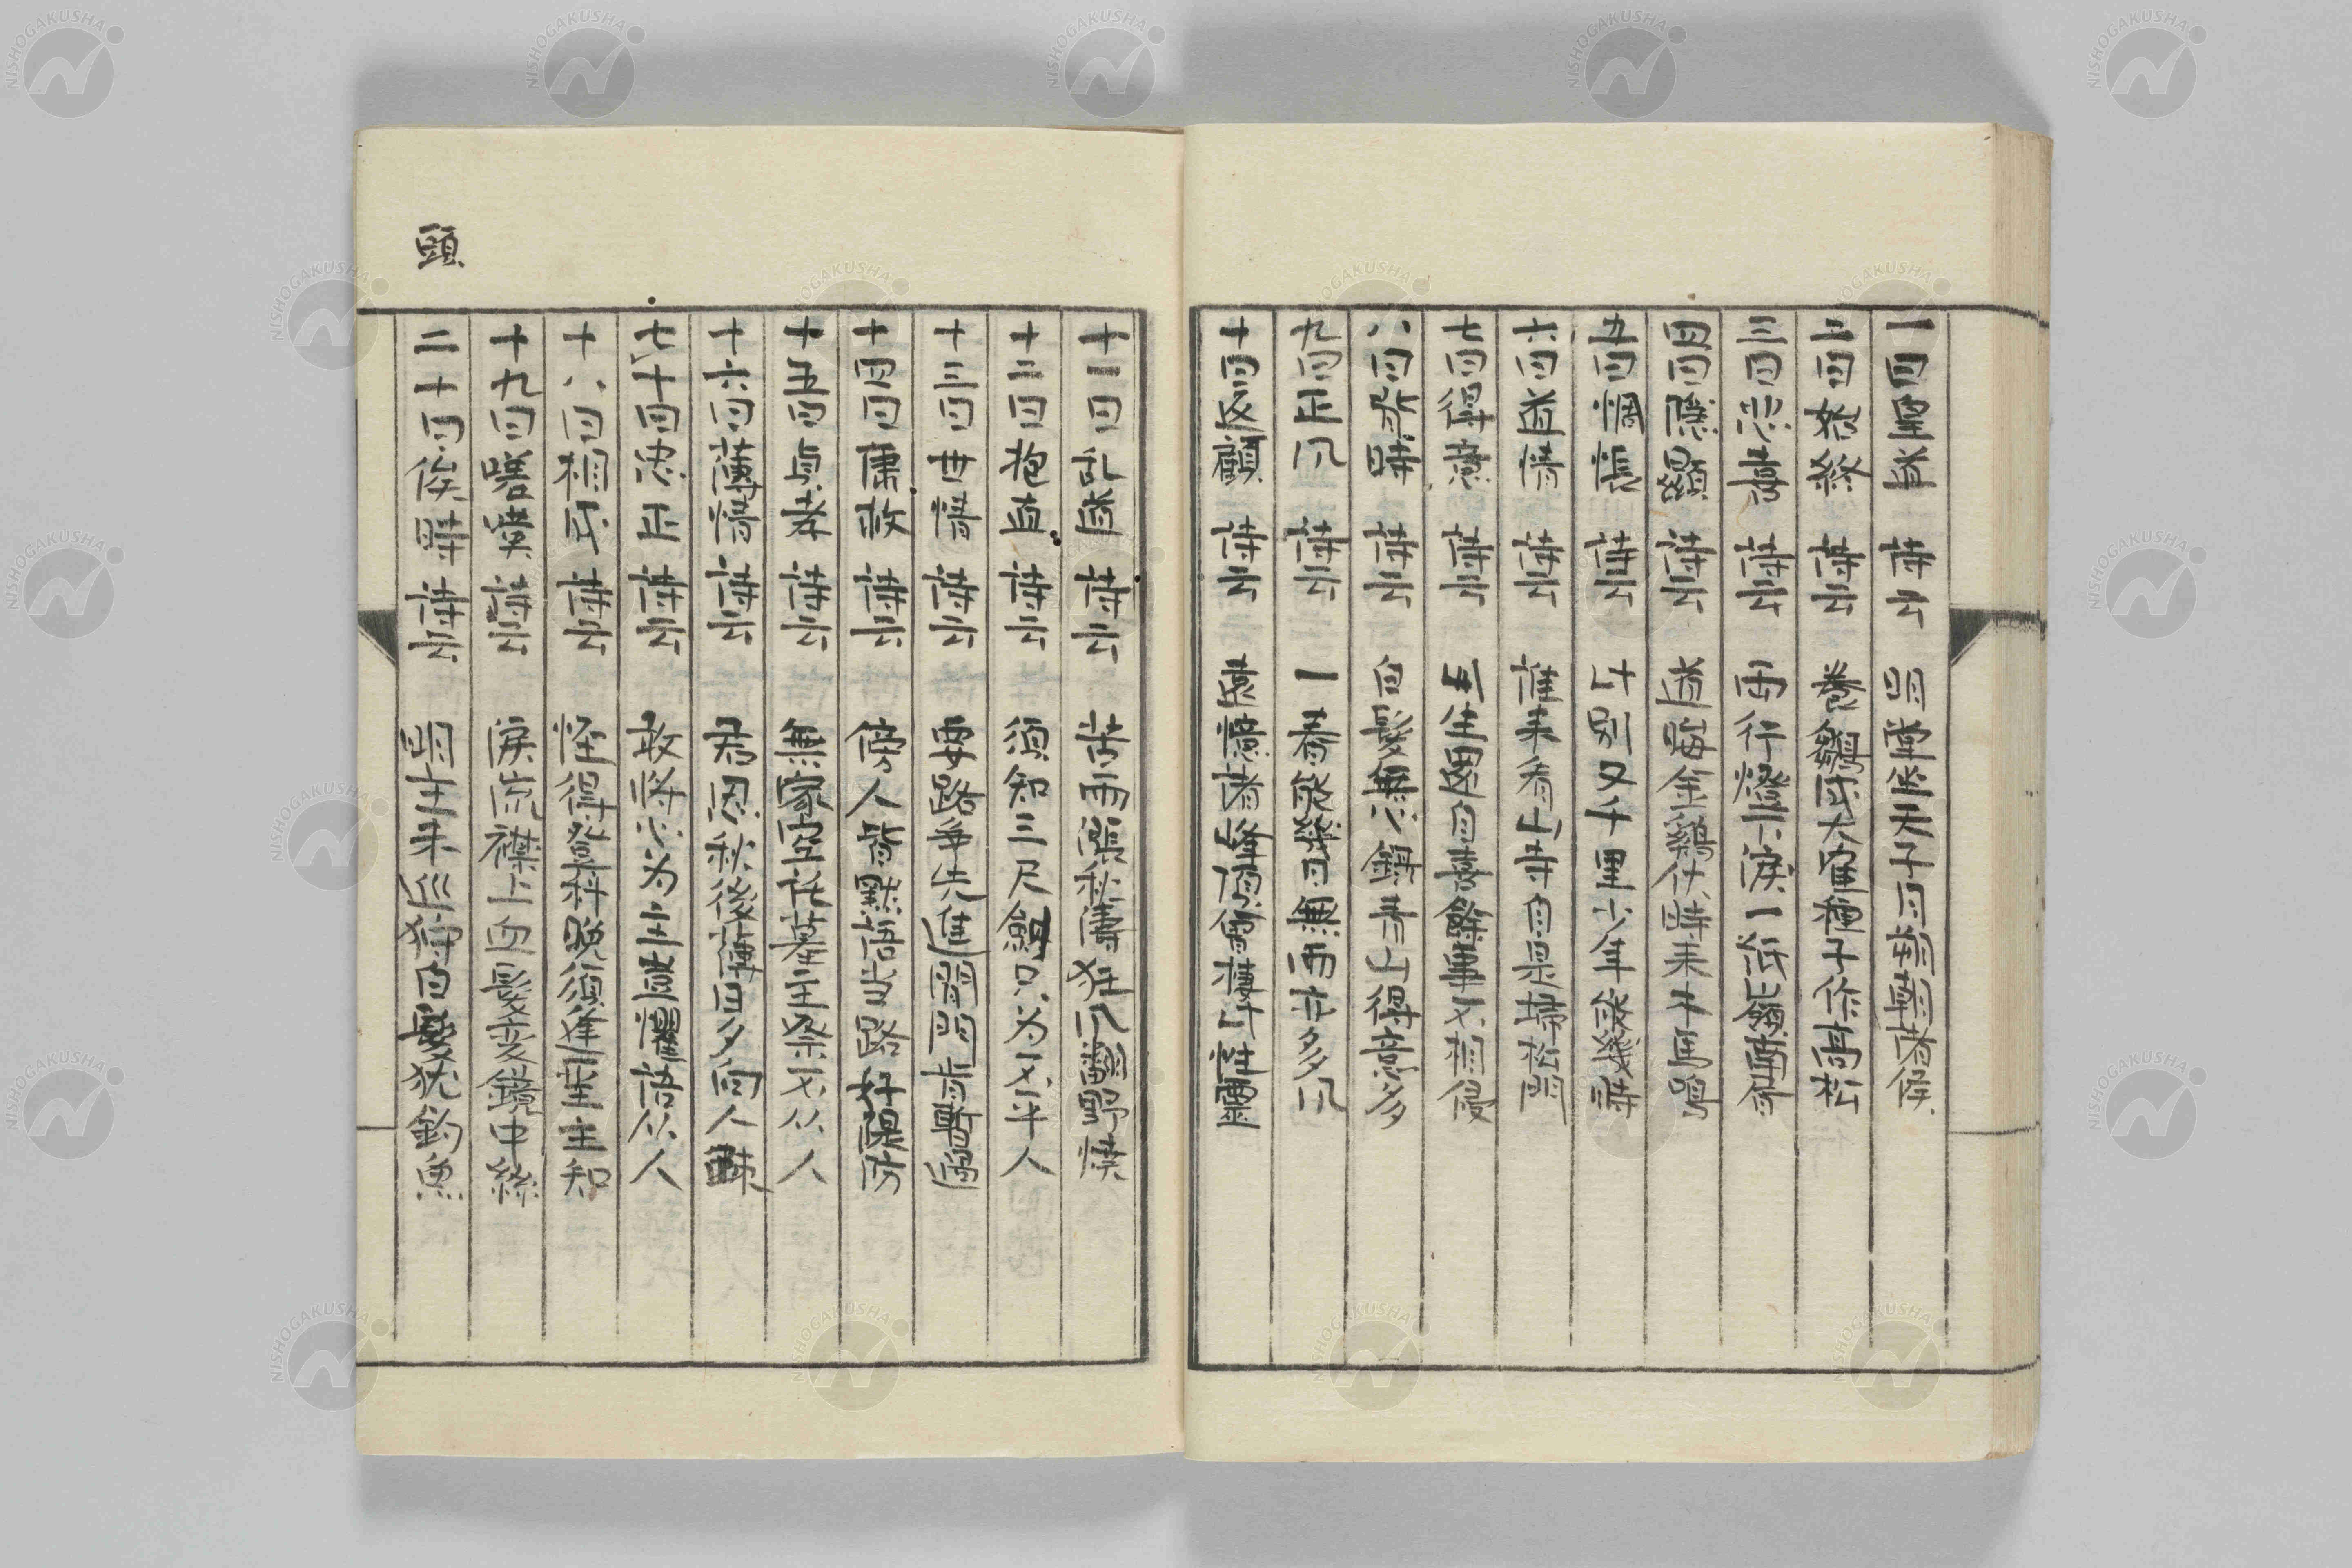 一曰皇道 詩云 明堂坐天子月朔朝諸侯
二曰始終 詩云 養鶵成大宿種子作高松
三曰悲喜 詩云 兩行燈下淚一紙嶺南書
四曰隱顯 詩云 道晦金鷄伏時来木馬鳴
五曰惆悵 詩云 此別又千里少年能幾時
六曰道情 詩云 誰来看山寺自是掃松門
七曰得意 詩云 此生還自喜餘事不相侵
八曰背時 詩云 白髮無心鑷青山得意多
九曰正风 詩云 一春能幾日無雨亦多风
十曰返顧 詩云 遠憶諸峰頂曾棲此性靈
十一曰乱道 詩云 苦雨漲秋濤狂风翻野燒
十二曰抱直 詩云 須知三尺劍只为不平人
十三曰世情 詩云 要路爭先進閑門肯暫過
十四曰庸救 詩云 傍人皆默語当路好隄防
十五曰貞孝 詩云 無家空託墓主祭不从人
十六曰薄情 詩云 君恩秋後薄日夕向人疎
七十曰忠正 詩云 敢将心为主豈懼語从人
十八曰相成 詩云 怪得登科晚須逢聖主知
十九曰嗟嘆 詩云 淚流襟上血髮变鏡中絲
二十曰俟時 詩云 明主未巡狩白髮猶釣魚
頭
NISHOGAKUSHA